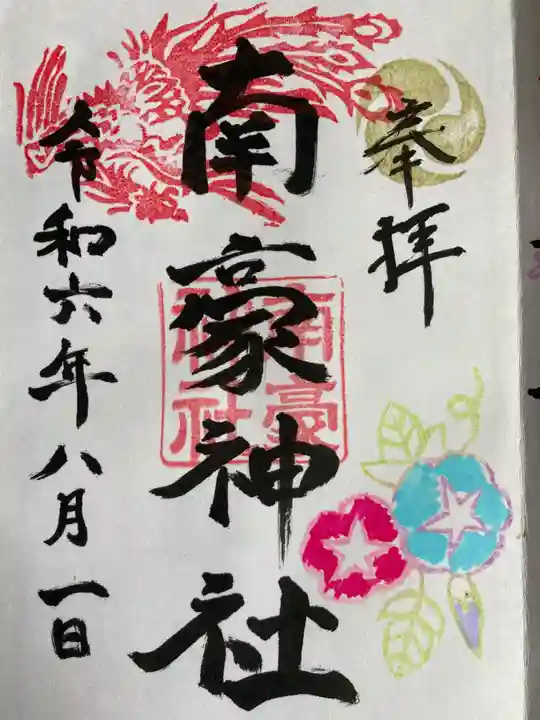 奉拝
南豪神社
南豪
神社
令和六年八月一日